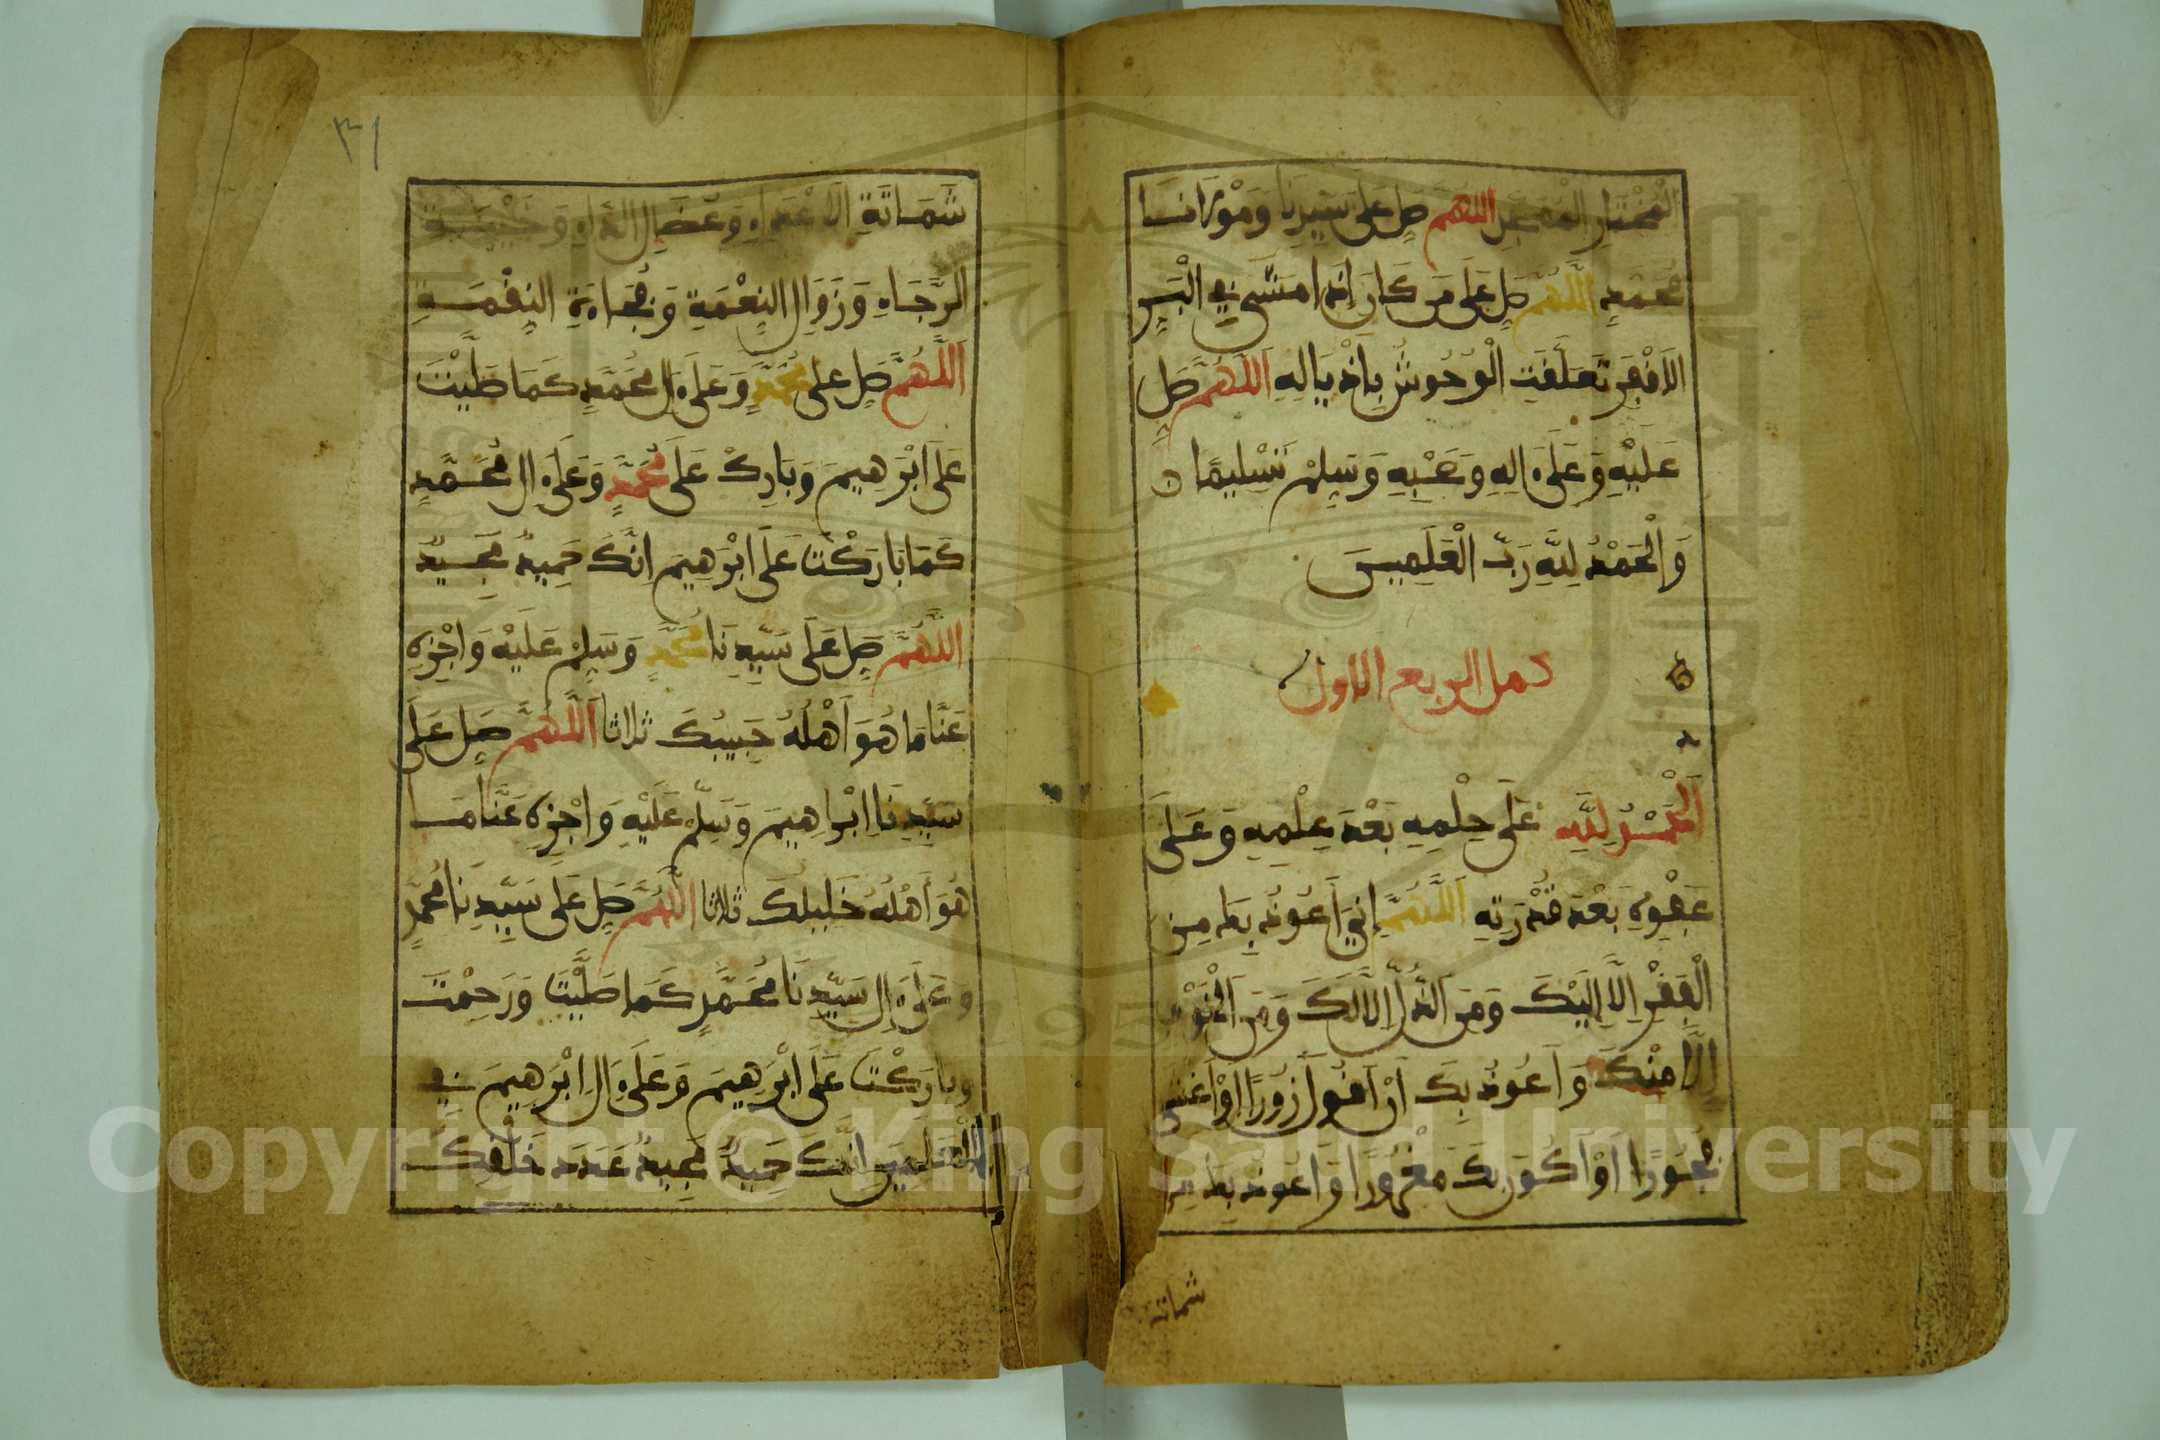 الْمُخْتَارِ الْمُمَجَّدِ اللَّهُمَّ صَلِّ عَلَى سَيِّدِنَا وَمَوْلَانَا
مُحَمَّدٍ اللَّهُمَّ صَلِّ عَلَى مَن كَانَ إِذَا مَشَى فِي الْبَرِّ
الْأَقْفَرِ تَعَلَّقَتِ الْوُحُوشُ بِأَذْيَالِهِ اللَّهُمَّ صَلِّ
عَلَيْهِ وَعَلَى ءَالِهِ وَصَحْبِهِ وَسَلِّمْ تَسْلِيمًا
وَالْحَمْدُ لِلَّهِ رَبِّ الْعَلَمِينَ
كمل الربع الاول
اَلْحَمْدُ لِلَّهِ عَلَى حِلْمِهِ بَعْدَ عِلْمِهِ وَعَلَى
عَفْوِهِ بَعْدَ قُدْرَتِهِ اَللَّهُمَّ إِنِّي أَعُوذُ بِكَ مِنَ
الْفَقْرِ إِلَّا إِلَيْكَ وَمِنَ الذُّلِّ إِلَّا لَكَ وَمِنَ الْخَوْفِ
إِلَّا مِنْكَ وَأَعُوذُ بِكَ أَنْ أَقُولَ زُورًا أَوْ أَغْشَى
فُجُورًا أَوْ أَكُونَ بِكَ مَغْرُورًا وَأَعُوذُ بِكَ مِن
شماتة
٣١
شَمَاتَةِ الْأَعْدَاءِ وَعُضَالِ الدَّاءِ وَخَيْبَةِ
الرَّجَاءِ وَزَوَالِ النِّعْمَةِ وَفُجَاءَةِ النِّقْمَةِ
اَللَّهُمَّ صَلِّ عَلَى مُحَمَّدٍ وَعَلَى ءَالِ مُحَمَّدٍ كَمَا صَلَّيْتَ
عَلَى ابْرَهِيمَ وَبَارِكْ عَلَى مُحَمَّدٍ وَعَلَى ءَالِ مُحَمَّدٍ
كَمَا بَارَكْتَ عَلَى ابْرَهِيمَ انَّكَ حَمِيدٌ مَجِيدٌ
اللَّهُمَّ صَلِّ عَلَى سَيِّدِنَا مُحَمَّدٍ وَسَلِّمْ عَلَيْهِ وَاجْزِهِ
عَنَّا مَا هُوَ أَهْلُهُ حَبِيبُكَ ثلاثا اَللَّهُمَّ صَلِّ عَلَى
سَيِّدِنَا ابْراهِيمَ وَسَلِّمْ عَلَيْهِ وَاجْزِهِ عَنَّا مَا
هُوَ أَهْلُهُ خَلِيلُكَ ثلاثا اللَّهُمَّ صَلِّ عَلَى سَيِّدِنَا مُحَمَّدٍ
وَعَلَى ءَالِ سَيِّدِنَا مُحَمَّدٍ كَمَا صَلَّيْتَ وَرَحِمْتَ
وَبَارَكْتَ عَلَى ابْرَهِيمَ وَعَلَى ءَالِ ابْرَهِيمَ فِي
الْعَلَمِينَ انَّكَ حَمِيدٌ مَجِيدٌ عَدَدَ خَلْقِكَ
Copyright © King Saud University